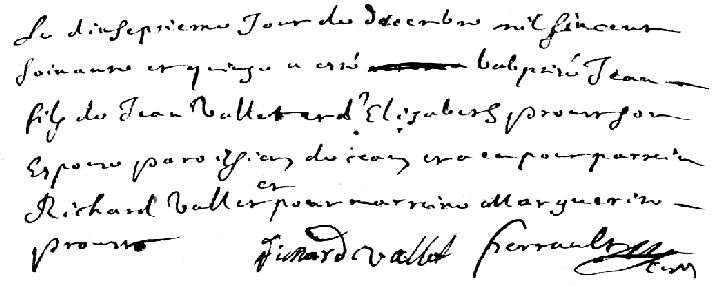 Le dixseptieme Jour de decembre mil six cent
soixante et quinze a esté baptisé Jean
fils de Jean Vallet et d' Elizabeth proust son
Espouse paroissiens de ceans et a eu pour parrein
Richard Vallet et pour marraine Marguerite
proust Richard Vallet